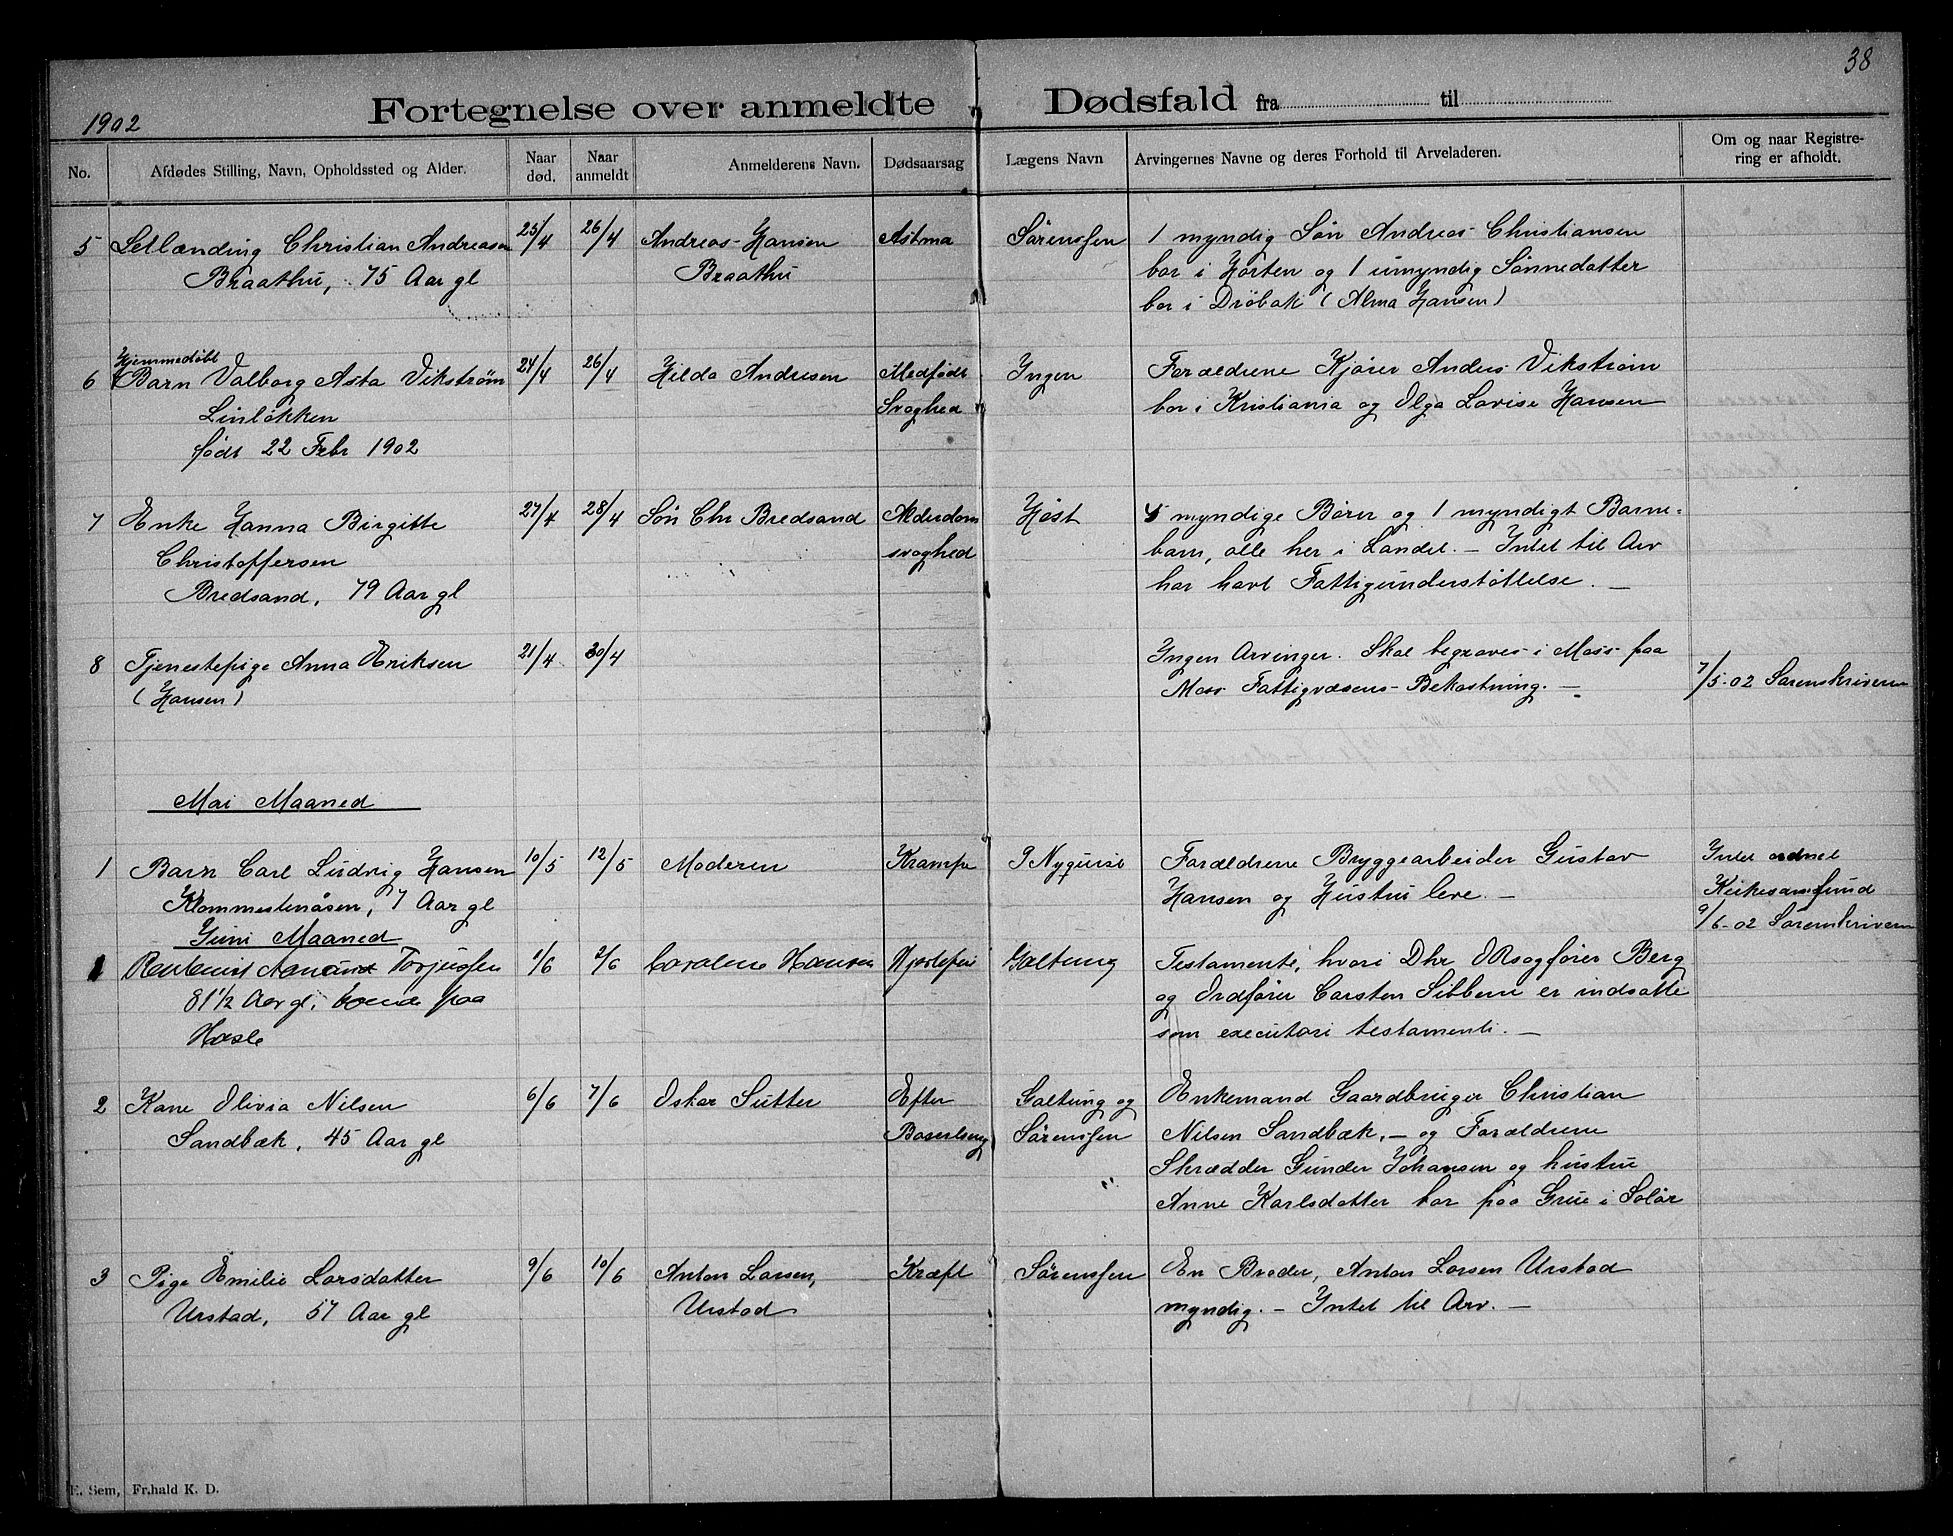 38
1902
Fortegnelse over anmeldte Dødsfald fra til
No.
Afdødes Stilling, Navn, Opholdssted og Alder.
Naar død.
Naar anmeldt
Anmelderens Navn.
Dødsaarsag
Lægens Navn
Arvingernes Navne og deres Forhold til Arveladeren.
Om og naar Registre-
ring er afholdt.
5 Letlænding Christian Andreasen 25/4 26/4 Andreas Hansen Astma Sørenssen 1 myndig Søn Andreas Christiansen
Braathu, 75 Aar gl Braathu bor i Horten og 1 umyndig Sønnedatter
bor i Drøbak (Alma Hansen)
Hjemmedøbt
6 Barn Valborg Asta Vikstrøm 24/4 26/4 Hilda Andresen Medfødt Ingen Forældrene Kjører Anders Vikstrøm
Linløkken Svaghed bor i Kristiania og Olga Lovise Hansen
født 22 Febr 1902
7 Enke Hanna Birgitte 27/4 28/4 Søn Chr Bredsand Alderdom Høst 5 myndige Børn og 1 myndigt Barne-
Christoffersen svaghed barn, alle her i Landet. – Intet til Arv
Bredsand, 79 Aar gl har havt Fattigunderstøttelse. –
8 Tjenestepige Anna Eriksen 21/4 30/4 Ingen Arvinger. Skal begraves i Moss paa
(Hansen) Moss Fattigvæsens Bekostning. – 7/5-02 Sorenskriveren
Mai Maaned
1 Barn Carl Ludvig Hansen 10/5 12/5 Moderen Krampe I Nyquist Forældrene Bryggearbeider Gustav Intet ordnet
Klommestenåsen, 7 Aar gl Hansen og Hustru leve. – Kirkesamfund
9/6-02 Sorenskriveren
Juni Maaned
1 Rentenist Amund Torjussen 1/6 2/6 Caroline Hansen Hjertefeil Galtung Testamente, hvori Dhr ORsagfører Berg
81 1/2 Aar gl, boende paa og Ordfører Carsten Sibbern er indsatte
Hasle som executori testamenti. –
2 Kone Olivia Nilsen 6/6 7/6 Oskar Sutter Efter Galtung og Enkemand Gaardbruger Christian
Sandbæk, 45 Aar gl Barselseng Sørenssen Nilsen Sandbæk, – og Forældrene
Skrædder Gunder Johansen og hustru
Anne Karlsdatter bor paa Grue i Solør
3 Pige Emilie Larsdatter 9/6 10/6 Anton Larsen, Kræft Sørenssen En Broder, Anton Larsen Urstad
Urstad, 57 Aar gl Urstad myndig. – Intet til Arv. –
E. Sem, Fr.hald K. D.